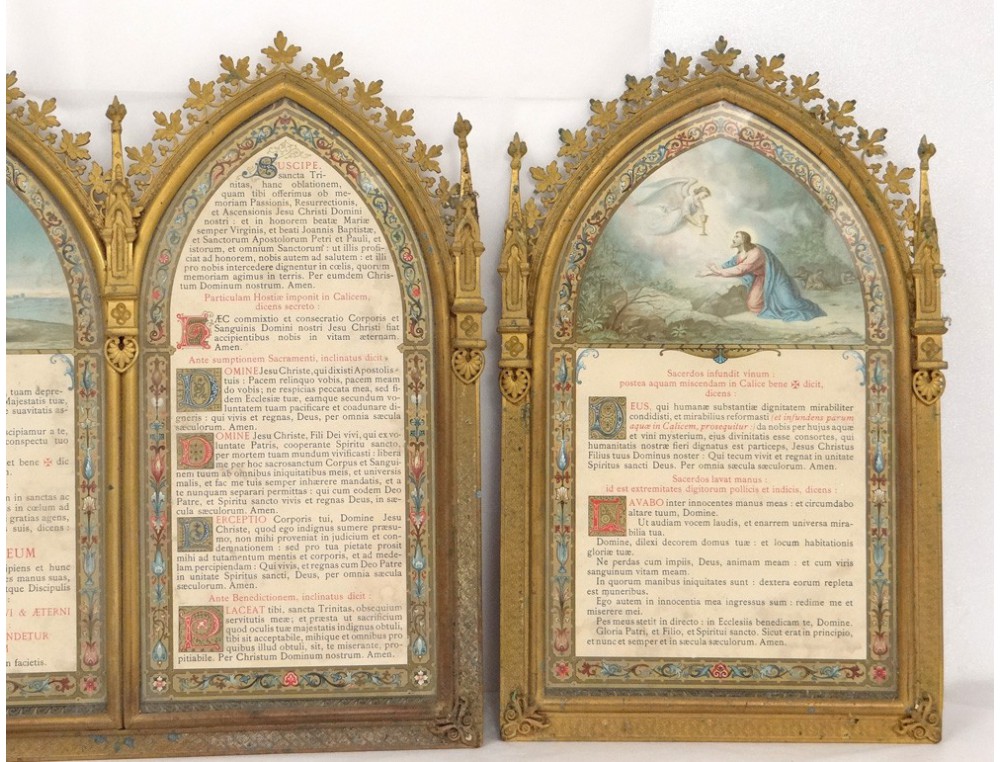 tuam depre-
Majestatis tuæ,
suavitatis as-
scipiamur a te,
conspectu tuo
et bene ✠ dic
in sanctas ac
in cœlum ad
gratias agens,
suis, dicens :
EUM
ipiens et hunc
manus suas,
tque Discipulis
VI & ÆTERNI
NDETUR
n facietis.
SUSCIPE,
sancta Tri-
nitas, hanc oblationem,
quam tibi offerimus ob me-
moriam Passionis, Resurrectionis,
et Ascensionis Jesu Christi Domini
nostri : et in honorem beatæ Mariæ
semper Virginis, et beati Joannis Baptistæ,
et Sanctorum Apostolorum Petri et Pauli, et
istorum, et omnium Sanctorum : ut illis profi-
ciat ad honorem, nobis autem ad salutem : et illi
pro nobis intercedere dignentur in cœlis, quorum
memoriam agimus in terris. Per eumdem Chris-
tum Dominum nostrum. Amen.
Particulam Hostiæ imponit in Calicem,
dicens secreto :
HÆC commixtio et consecratio Corporis et
Sanguinis Domini nostri Jesu Christi fiat
accipientibus nobis in vitam æternam.
Amen.
Ante sumptionem Sacramenti, inclinatus dicit :
DOMINE Jesu Christe, qui dixisti Apostolis
tuis : Pacem relinquo vobis, pacem meam
do vobis; ne respicias peccata mea, sed fi-
dem Ecclesiæ tuæ, eamque secundum vo-
luntatem tuam pacificare et coadunare di-
gneris : qui vivis et regnas, Deus, per omnia sæcula
sæculorum. Amen.
DOMINE Jesu Christe, Fili Dei vivi, qui ex vo-
luntate Patris, cooperante Spiritu sancto,
per mortem tuam mundum vivificasti : libera
me per hoc sacrosanctum Corpus et Sangui-
nem tuum ab omnibus iniquitatibus meis, et universis
malis, et fac me tuis semper inhærere mandatis, et a
te nunquam separari permittas : qui cum eodem Deo
Patre, et Spiritu sancto vivis et regnas Deus, in sæ-
cula sæculorum. Amen.
PERCEPTIO Corporis tui, Domine Jesu
Christe, quod ego indignus sumere præsu-
mo, non mihi proveniat in judicium et con-
demnationem : sed pro tua pietate prosit
mihi ad tutamentum mentis et corporis, et ad mede-
lam percipiendam : Qui vivis, et regnas cum Deo Patre
in unitate Spiritus sancti, Deus, per omnia sæcula
sæculorum. Amen.
Ante Benedictionem, inclinatus dicit :
PLACEAT tibi, sancta Trinitas, obsequium
servitutis meæ; et præsta ut sacrificium
quod oculis tuæ majestatis indignus obtuli,
tibi sit acceptabile, mihique et omnibus pro
quibus illud obtuli, sit, te miserante, pro-
pitiabile. Per Christum Dominum nostrum. Amen.
Sacerdos infundit vinum :
postea aquam miscendam in Calice bene ✠ dicit,
dicens :
DEUS, qui humanæ substantiæ dignitatem mirabiliter
condidisti, et mirabilius reformasti (et infundens parum
aquæ in Calicem, prosequitur :) da nobis per hujus aquæ
et vini mysterium, ejus divinitatis esse consortes, qui
humanitatis nostræ fieri dignatus est particeps, Jesus Christus
Filius tuus Dominus noster : Qui tecum vivit et regnat in unitate
Spiritus sancti Deus. Per omnia sæcula sæculorum. Amen.
Sacerdos lavat manus :
id est extremitates digitorum pollicis et indicis, dicens :
LAVABO inter innocentes manus meas : et circumdabo
altare tuum, Domine.
Ut audiam vocem laudis, et enarrem universa mira-
bilia tua.
Domine, dilexi decorem domus tuæ : et locum habitationis
gloriæ tuæ.
Ne perdas cum impiis, Deus, animam meam : et cum viris
sanguinum vitam meam.
In quorum manibus iniquitates sunt : dextera eorum repleta
est muneribus.
Ego autem in innocentia mea ingressus sum : redime me et
miserere mei.
Pes meus stetit in directo : in Ecclesiis benedicam te, Domine.
Gloria Patri, et Filio, et Spiritui sancto. Sicut erat in principio,
et nunc et semper et in sæcula sæculorum. Amen.